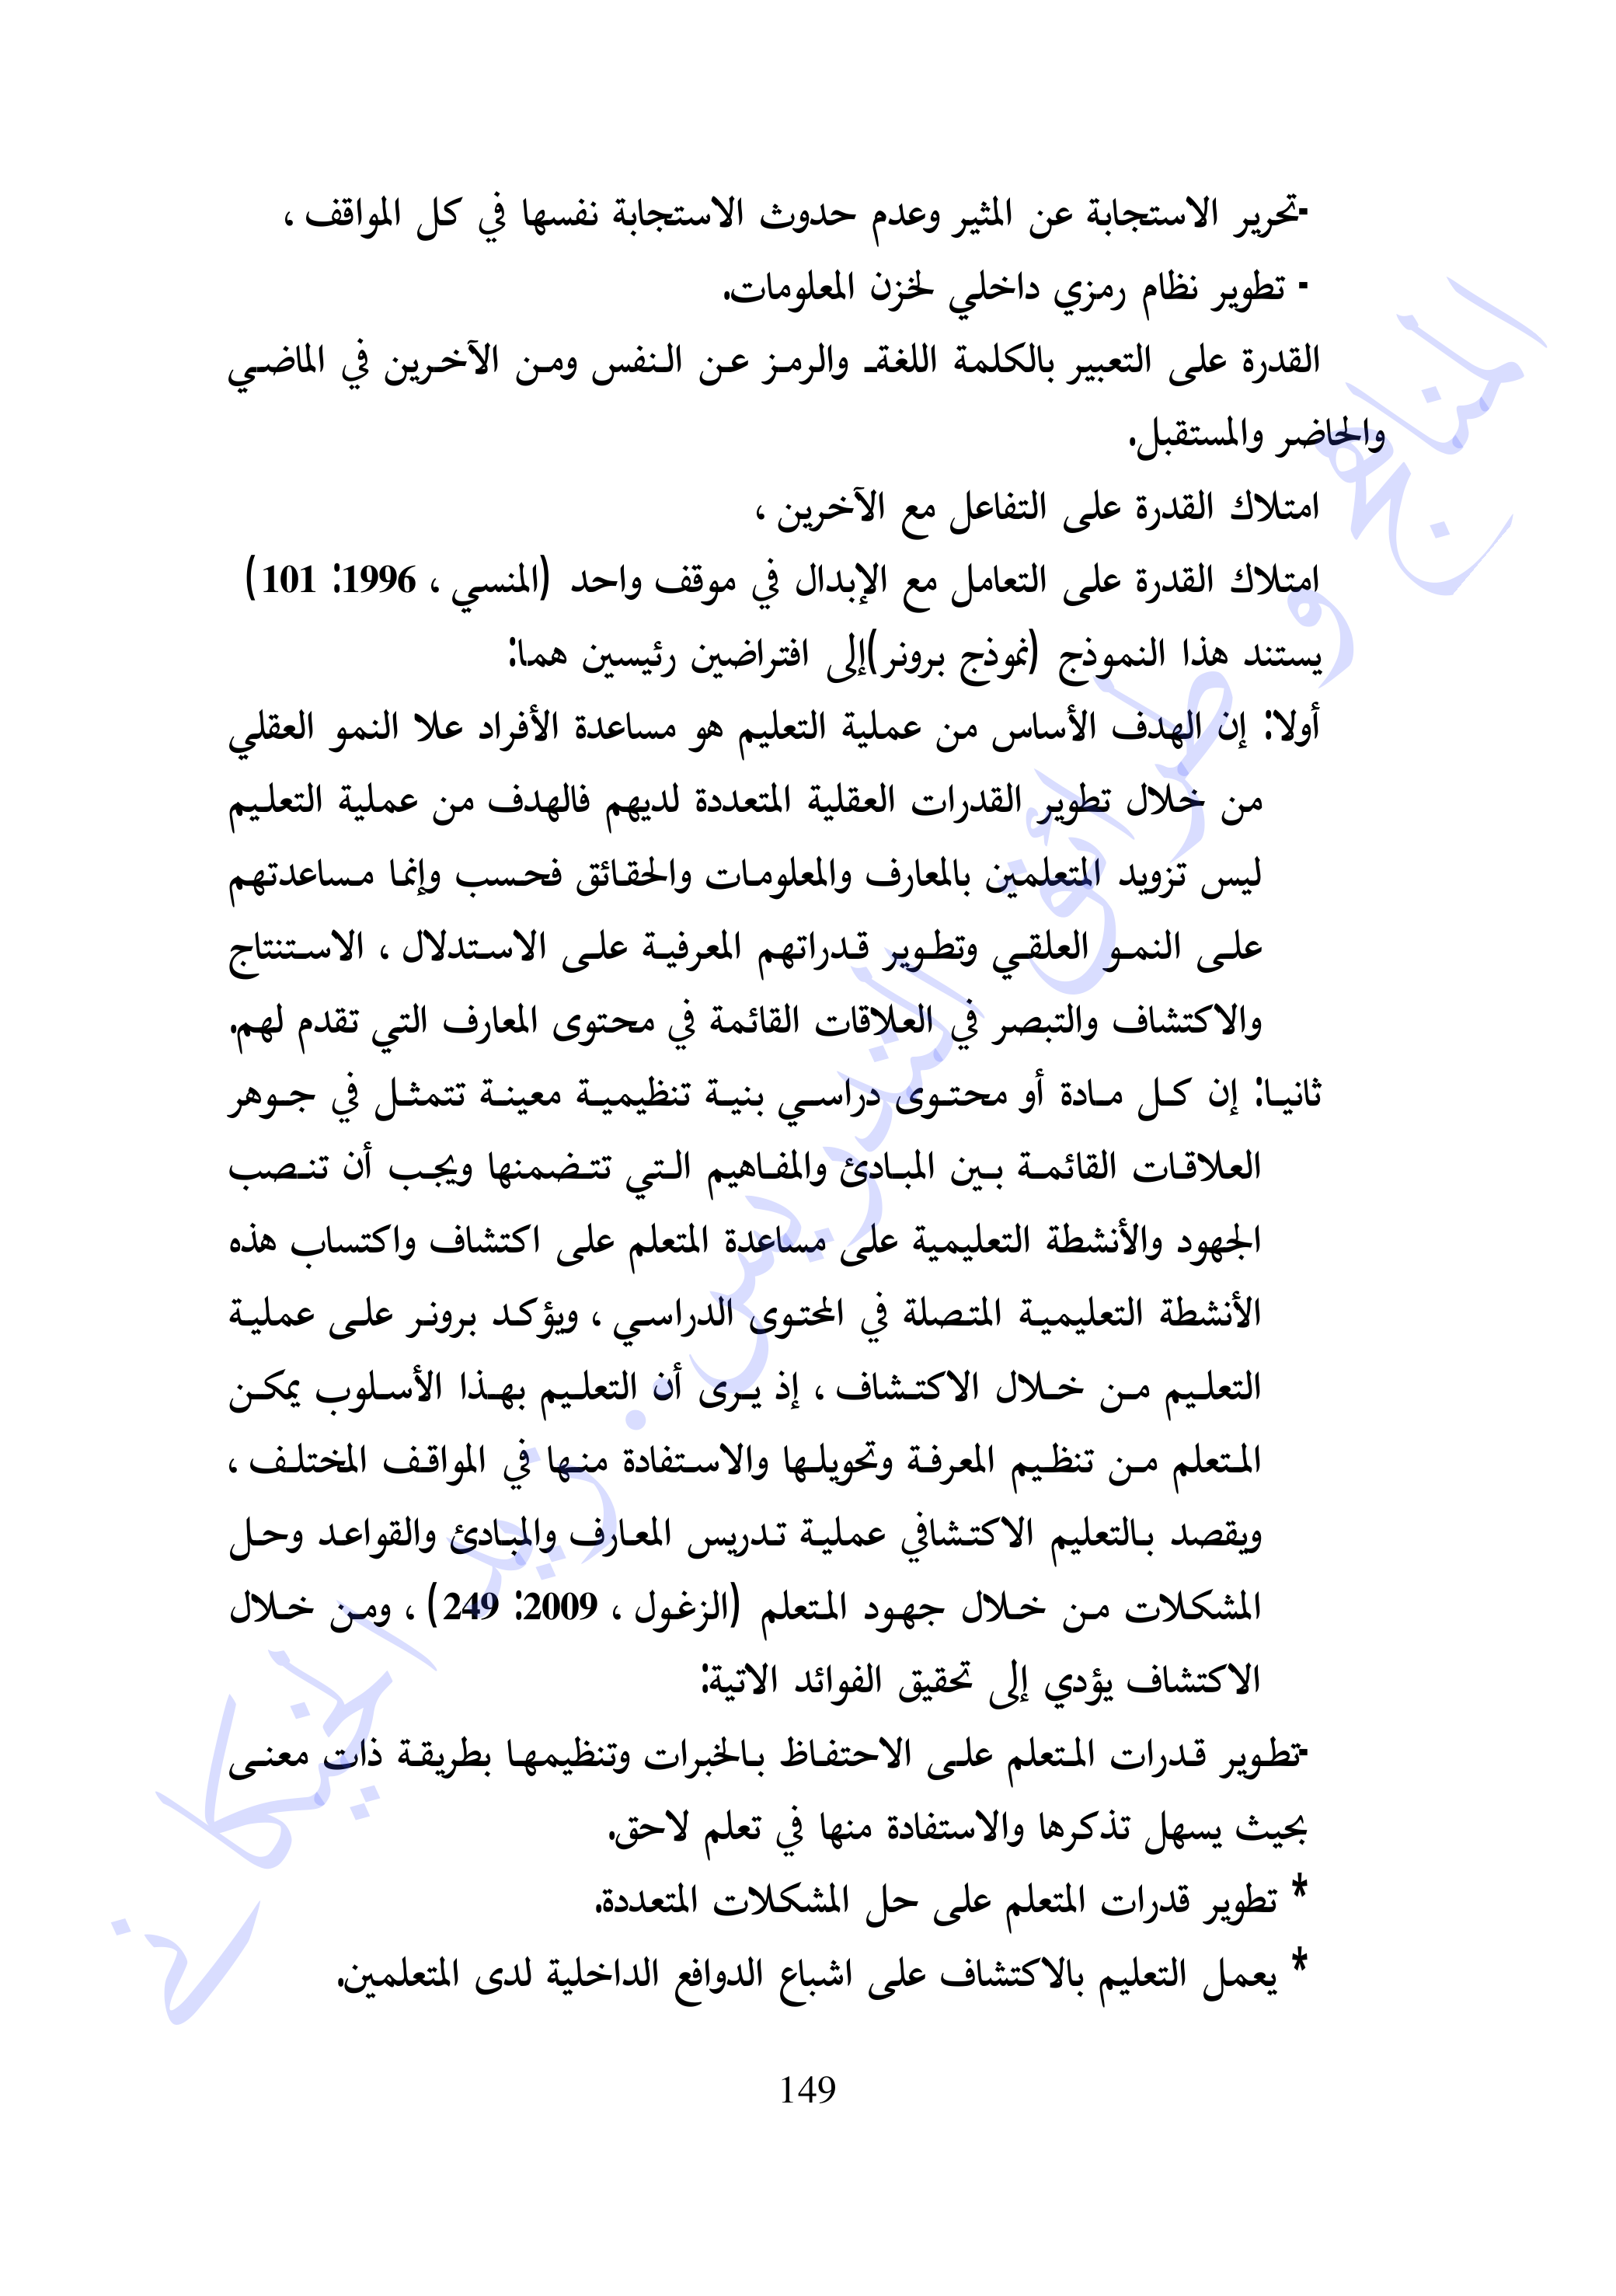 -تحرير الاستجابة عن المثير وعدم حدوث الاستجابة نفسها في كل المواقف ،
- تطوير نظام رمزي داخلي لخزن المعلومات.
القدرة على التعبير بالكلمة اللغةـ والرمز عن النفس ومن الآخرين في الماضي
والحاضر والمستقبل.
امتلاك القدرة على التفاعل مع الآخرين ،
امتلاك القدرة على التعامل مع الإبدال في موقف واحد (المنسي ، 1996: 101)
يستند هذا النموذج (نموذج برونر)إلى افتراضين رئيسين هما:
أولا: إن الهدف الأساس من عملية التعليم هو مساعدة الأفراد علا النمو العقلي
من خلال تطوير القدرات العقلية المتعددة لديهم فالهدف من عملية التعليم
ليس تزويد المتعلمين بالمعارف والمعلومات والحقائق فحسب وإنما مساعدتهم
على النمو العلقي وتطوير قدراتهم المعرفية على الاستدلال ، الاستنتاج
والاكتشاف والتبصر في العلاقات القائمة في محتوى المعارف التي تقدم لهم.
ثانيا: إن كل مادة أو محتوى دراسي بنية تنظيمية معينة تتمثل في جوهر
العلاقات القائمة بين المبادئ والمفاهيم التي تتضمنها ويجب أن تنصب
الجهود والأنشطة التعليمية على مساعدة المتعلم على اكتشاف واكتساب هذه
الأنشطة التعليمية المتصلة في المحتوى الدراسي ، ويؤكد برونر على عملية
التعليم من خلال الاكتشاف ، إذ يرى أن التعليم بهذا الأسلوب يمكن
المتعلم من تنظيم المعرفة وتحويلها والاستفادة منها في المواقف المختلف ،
ويقصد بالتعليم الاكتشافي عملية تدريس المعارف والمبادئ والقواعد وحل
المشكلات من خلال جهود المتعلم (الزغول ، 2009: 249) ، ومن خلال
الاكتشاف يؤدي إلى تحقيق الفوائد الاتية:
-تطوير قدرات المتعلم على الاحتفاظ بالخبرات وتنظيمها بطريقة ذات معنى
بحيث يسهل تذكرها والاستفادة منها في تعلم لاحق.
* تطوير قدرات المتعلم على حل المشكلات المتعددة.
* يعمل التعليم بالاكتشاف على اشباع الدوافع الداخلية لدى المتعلمين.
149